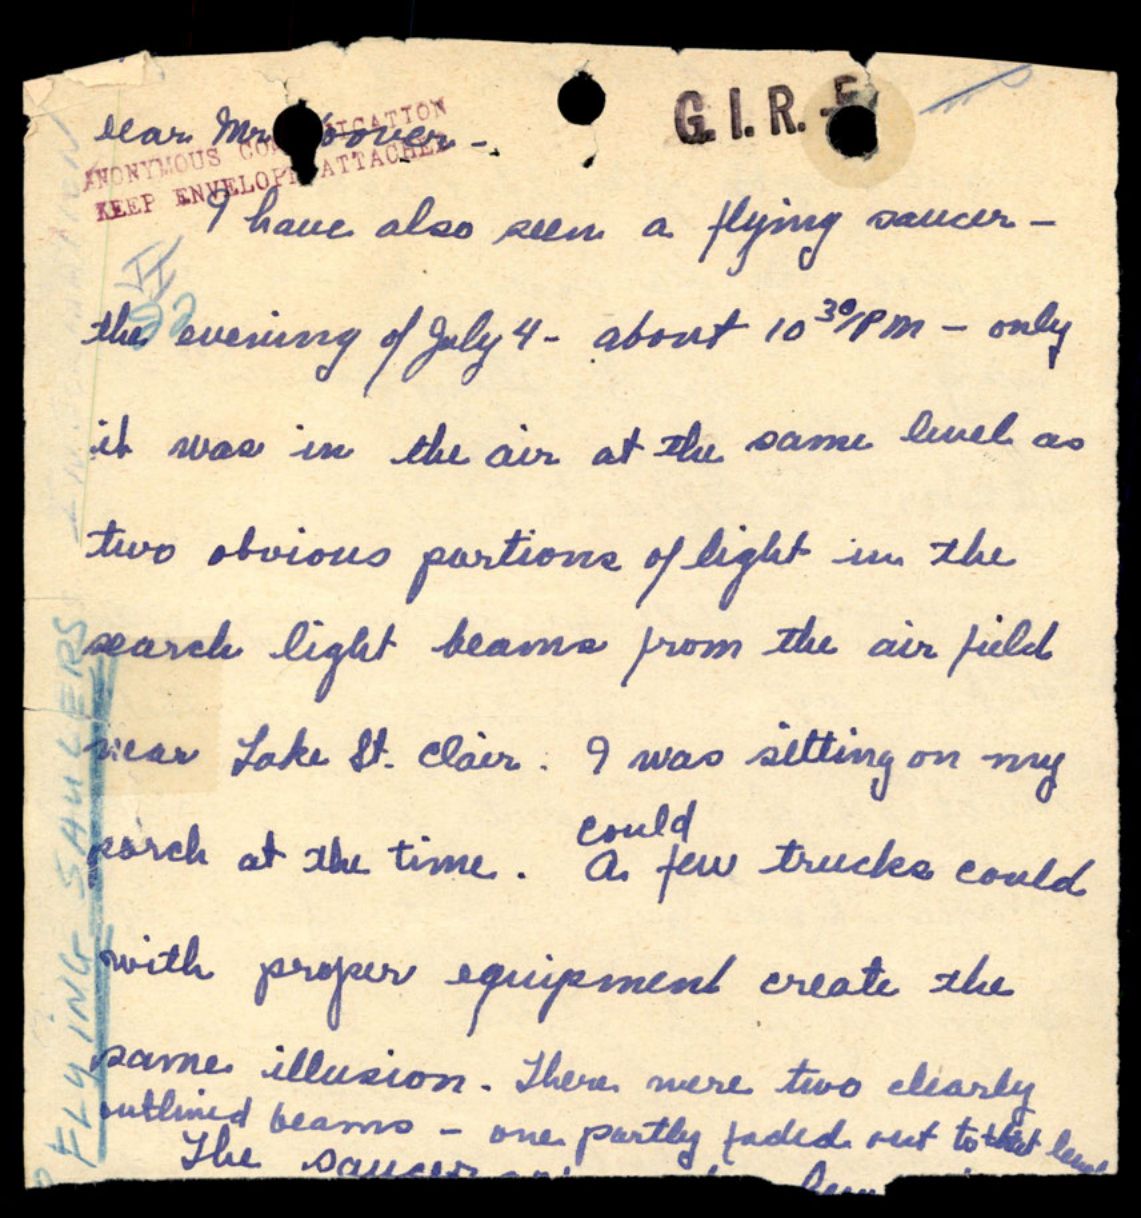 dear Mr. Hoover -
G.I.R. -5
ANONYMOUS COMMUNICATION
KEEP ENVELOPE ATTACHED
I have also seen a flying saucer -
the evening of July 4 - about 10 30/PM - only
it was in the air at the same level as
two obvious portions of light in the
search light beams from the air field
near Lake St. Clair. I was sitting on my
could
porch at the time. A few trucks could
with proper equipment create the
same illusion. There were two clearly
outlined beams - one partly faded out to that level
The saucer
FLYING SAUCERS